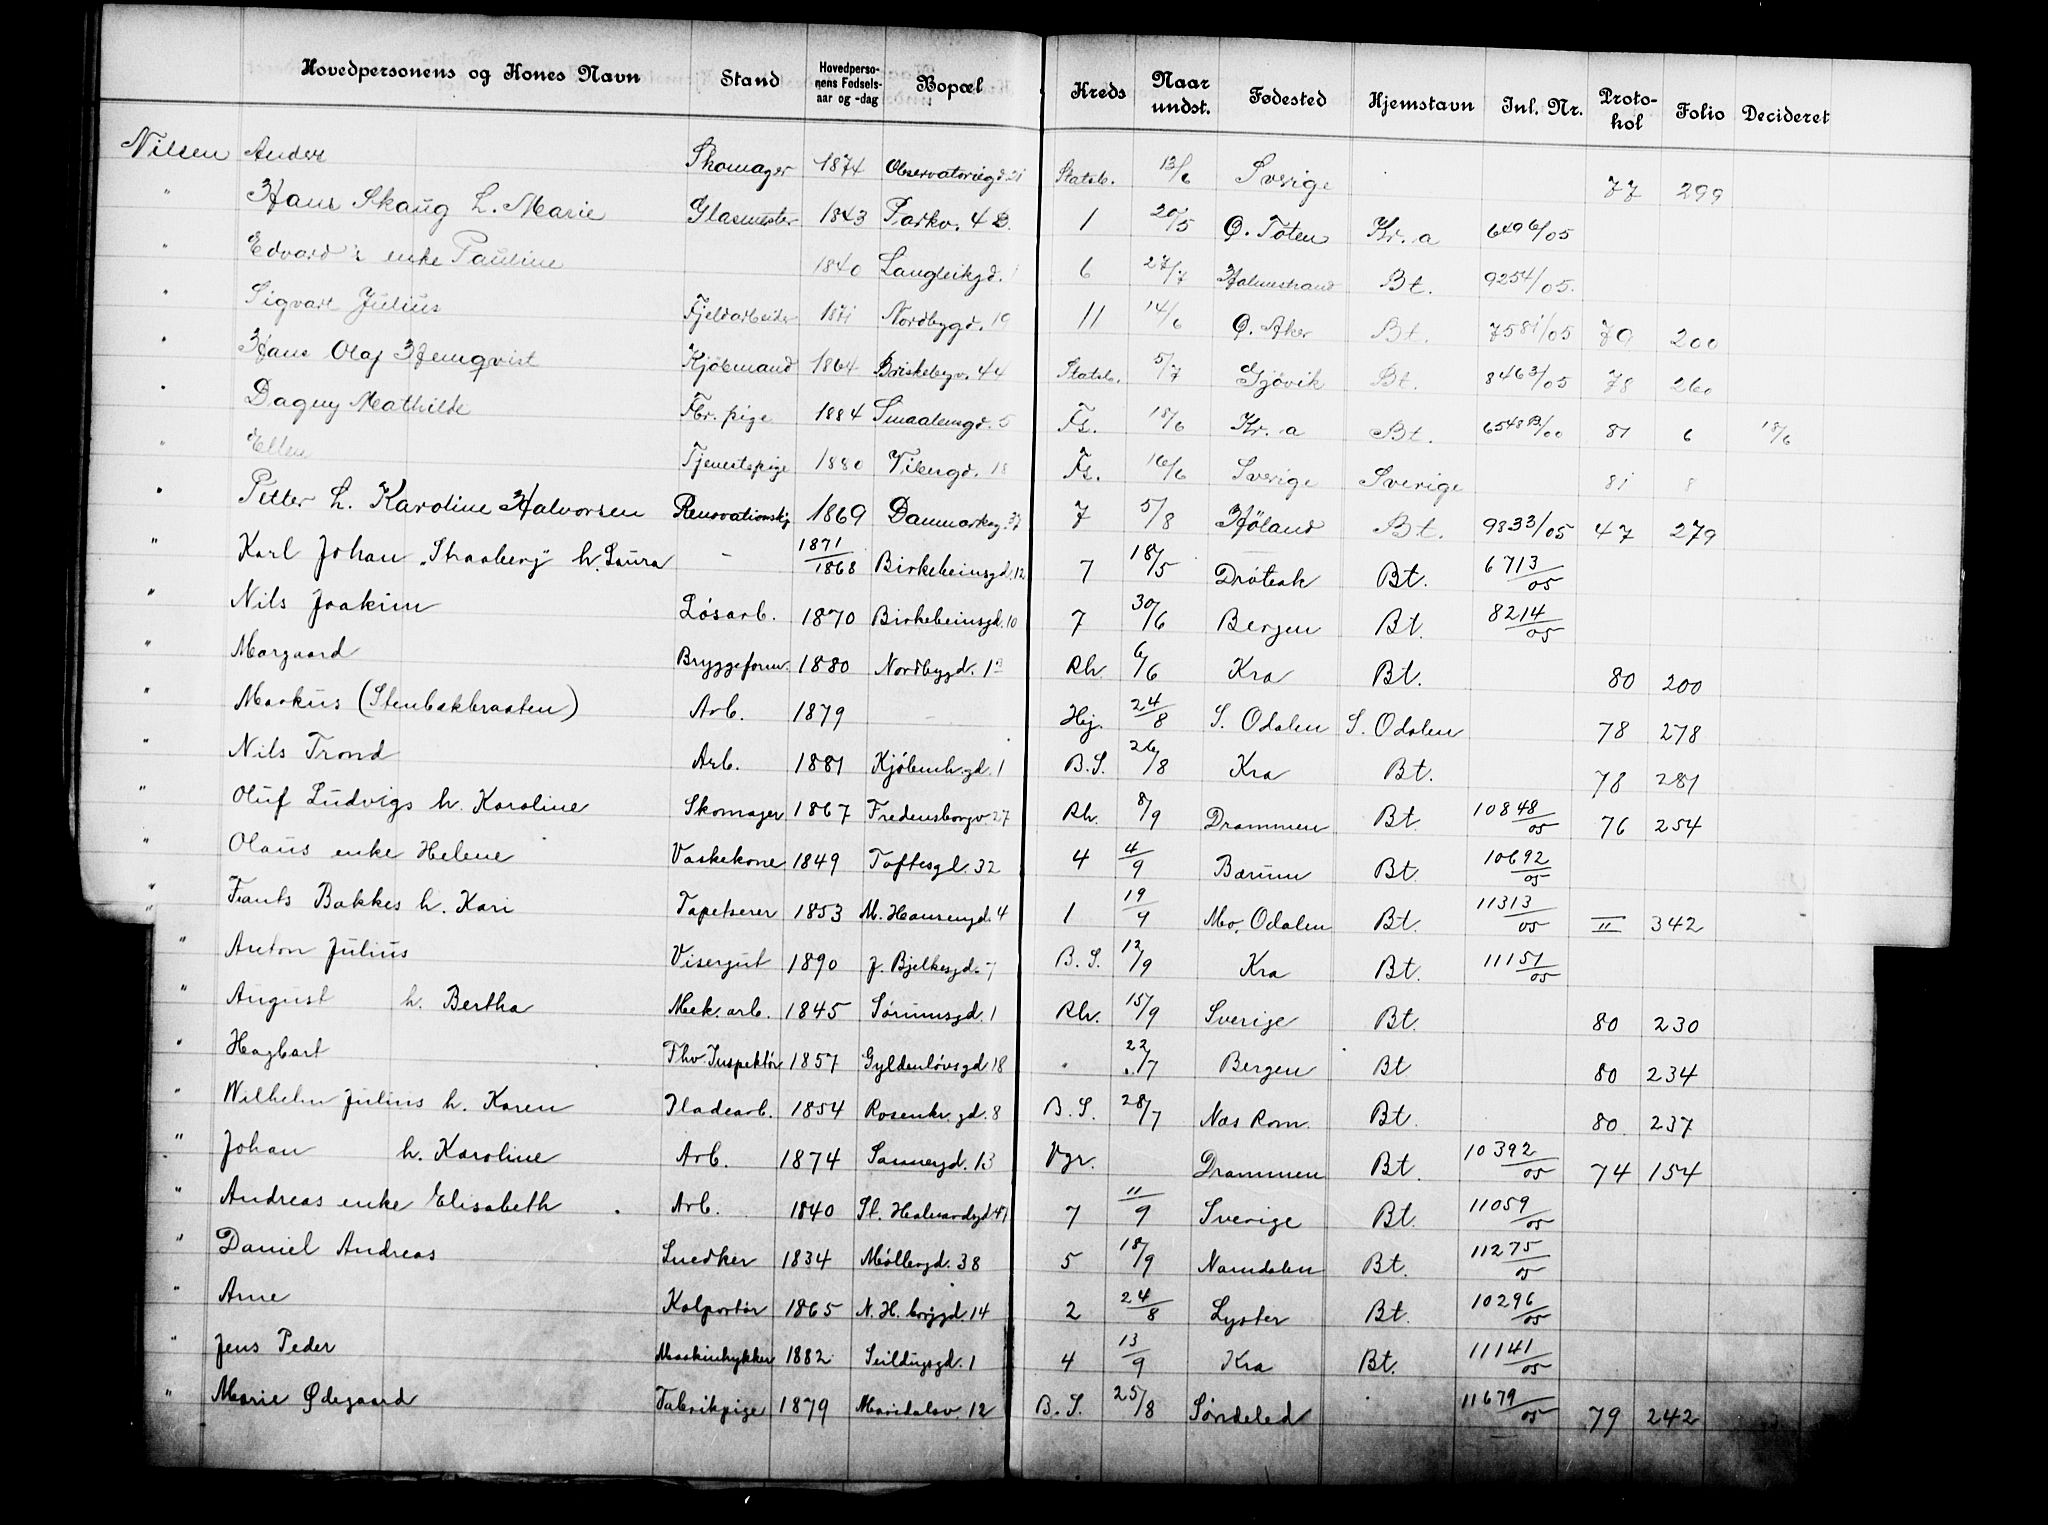 Hovedpersonens og Kones Navn Stand Hovedperso-nens Fødsels-aar og -dag Bopæl Kreds Naar undst. Fødested Hjemstavn Inl. Nr. Proto-kol Folio Decideret
Nilsen Anders Skomager 1874 Observatoriegd. 21 Statsb. 13/6 Sverige 77 299
" Hans Skaug h. Marie Glasmester 1843 Parkv. 4 B. 1 20/5 Ø. Toten Kr.a 6496/05
" Edvard's enke Pauline 1840 Langleikgd. 1 6 27/7 Holmestrand Bt. 9254/05.
" Sigvart Julius Fjeldarbeider 1871 Nordbygd. 19 11 14/6 Ø. Aker Bt. 7581/05 79 200
" Hans Olaf Hemqvist Kjøbmand 1864 Briskebyv. 44 Statsb. 5/7 Gjøvik Bt. 8463/05 78 260
" Dagny Mathilde Fbr. pige 1884 Smaalensgd. 5 Fs. 18/6 Kr.a Bt. 6548 B/00 81 6 18/6
" Ellen Tjenestepige 1880 Vibesgd. 18 Fs. 16/6 Sverige Sverige 81 8
" Petter h. Karoline Halvorsen Renovationskj 1869 Danmarksg. 37 7 5/8 Høland Bt. 9833/05 47 279
" Karl Johan "Straaberg" h. Laura – 1871/1868 Birkebeinsgd. 12 7 18/5 Drøbak Bt. 6713/05
" Nils Joakim Løsarb. 1870 Birkebeinsgd. 10 7 30/6 Bergen Bt. 8214/05
" Morgaard Bryggeform. 1880 Nordbygd. 13 Rh 6/6 Kra Bt. 80 200
" Markus (Stenbekbraaten) Arb. 1879 – Hj. 24/8 S. Odalen S. Odalen 78 278
" Nils Trond Arb. 1881 Kjøbenh.gd. 1 B.S. 26/8 Kra Bt. 78 281
" Oluf Ludvigs h. Karoline Skomager 1867 Fredensborgv. 27 Rh. 8/9 Drammen Bt. 10848/05 76 254
" Olaus enke Helene Vaskekone 1849 Toftesgd. 32 4 4/9 Bærum Bt. 10692/05
" Frants Bakkes h. Kari Tapetserer 1853 M. Hansensgd. 4 1 19/9 No. Odalen Bt. 11313/05 II 342
" Anton Julius Visergut 1890 J. Bjelkesgd. 7 B.S. 12/9 Kra Bt. 11151/05
" August h. Bertha Mek. arb. 1845 Sørumsgd. 1 Rh. 15/9 Sverige Bt. 80 230
" Hagbart Fhv. Inspektør 1857 Gyldenløvsgd 18 " 22/7 Bergen Bt 80 234
" Wilhelm Julius h. Karen Pladsarb. 1854 Rosenkr.gd. 8 B.S. 28/7 Nas Rom. Bt. 80. 237
" Johan h. Karoline Arb. 1874 Sannergd. 13 Vgr. Drammen Bt. 10392/05 74 154
" Andreas enke Elisabeth Arb. 1840 St. Halvardsgd 41 7 11/9 Sverige Bt. 11059/05
" Daniel Andreas Snedker 1834 Møllergd. 38 5 18/9 Namdalen Bt. 11275/05
" Arne Kolportør 1865 N. H. 14 2 24/8 Lyster Bt. 10296/05
" Jens Peder Maskintrykker 1882 Seildugsgd. 1 4 13/9 Kra Bt. 11141/05
" Marie Ødegaard Fabrikpige 1879 Maridalsv. 12 B.S. 25/8 Søndeled 11679/05 79 242